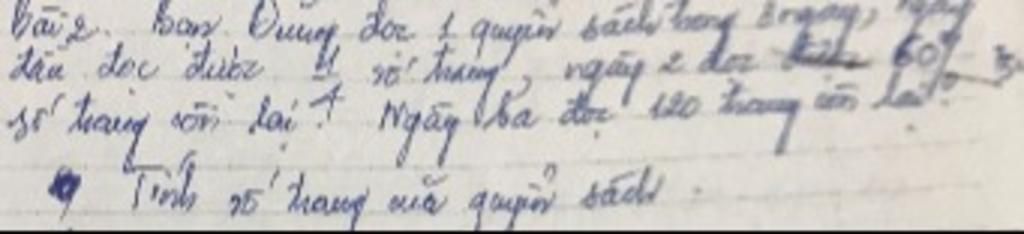 Bài 2. Bạn Dũng đọc 1 quyển sách trong 3 ngày, ngày
đầu đọc được 1/4 số trang, ngày 2 đọc 60%
số trang còn lại. Ngày ba đọc 120 trang còn lại.
Tính số trang của quyển sách